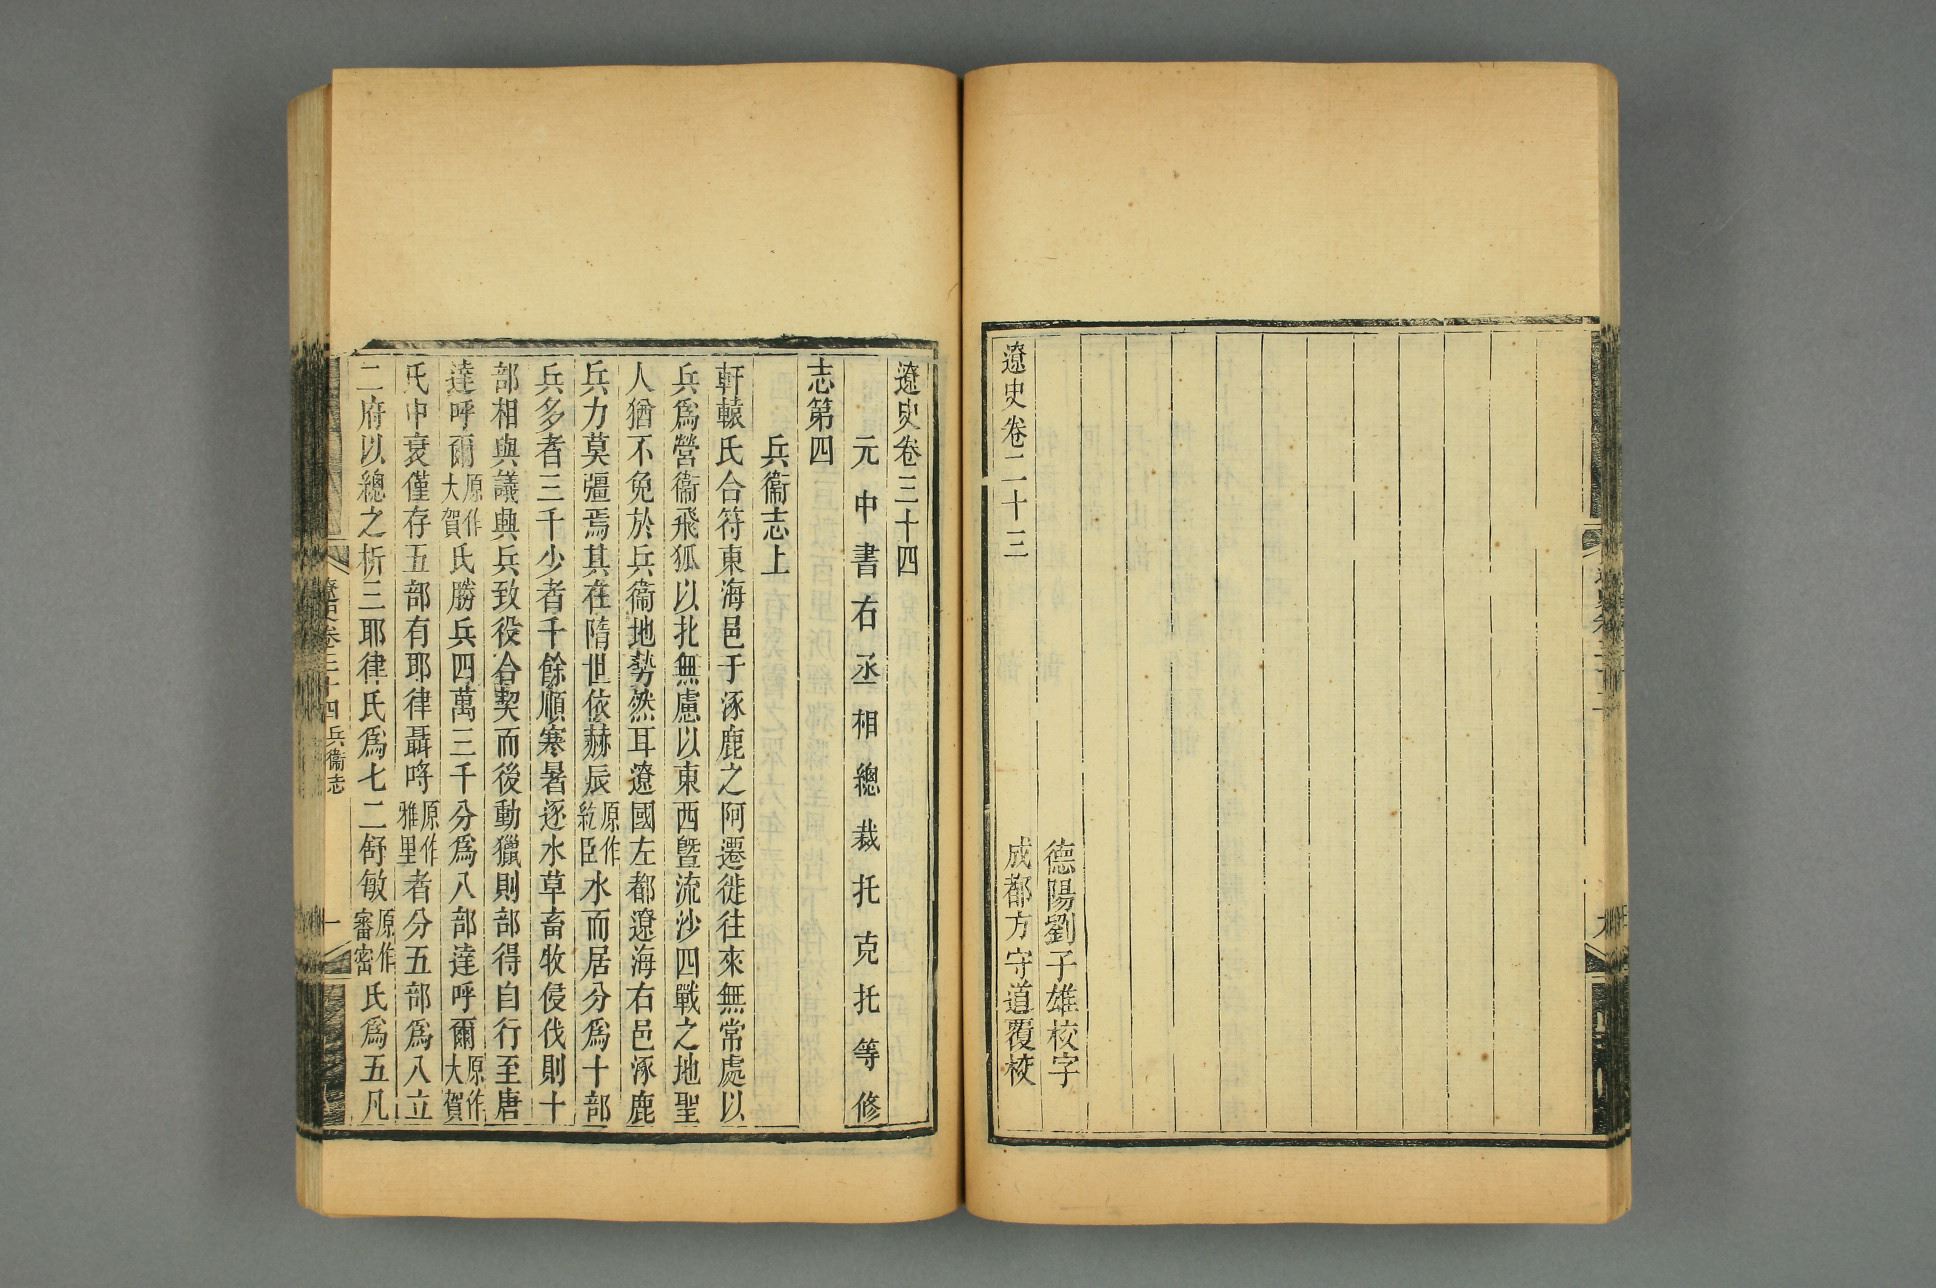 遼史卷二十三
德陽劉子雄校字
成都方守道覆校
遼史卷三十四
元中書右丞相總裁托克托等修
志第四
兵衞志上
軒轅氏合符東海邑于涿鹿之阿遷徙往來無常處以
兵爲營衞飛狐以北無慮以東西曁流沙四戰之地聖
人猶不免於兵衞地勢然耳遼國左都遼海右邑涿鹿
兵力莫彊焉其在隋世依赫辰原作紇臣水而居分爲十部
兵多者三千少者千餘順寒暑逐水草畜牧侵伐則十
部相與議興兵致役合契而後動獵則部得自行至唐
達呼爾原作大賀氏勝兵四萬三千分爲八部達呼爾原作大賀
氏中衰僅存五部有耶律聶呼原作雅里者分五部爲八立
二府以總之析三耶律氏爲七二舒敏原作審密氏爲五凡
遼史卷三十四兵衞志
一